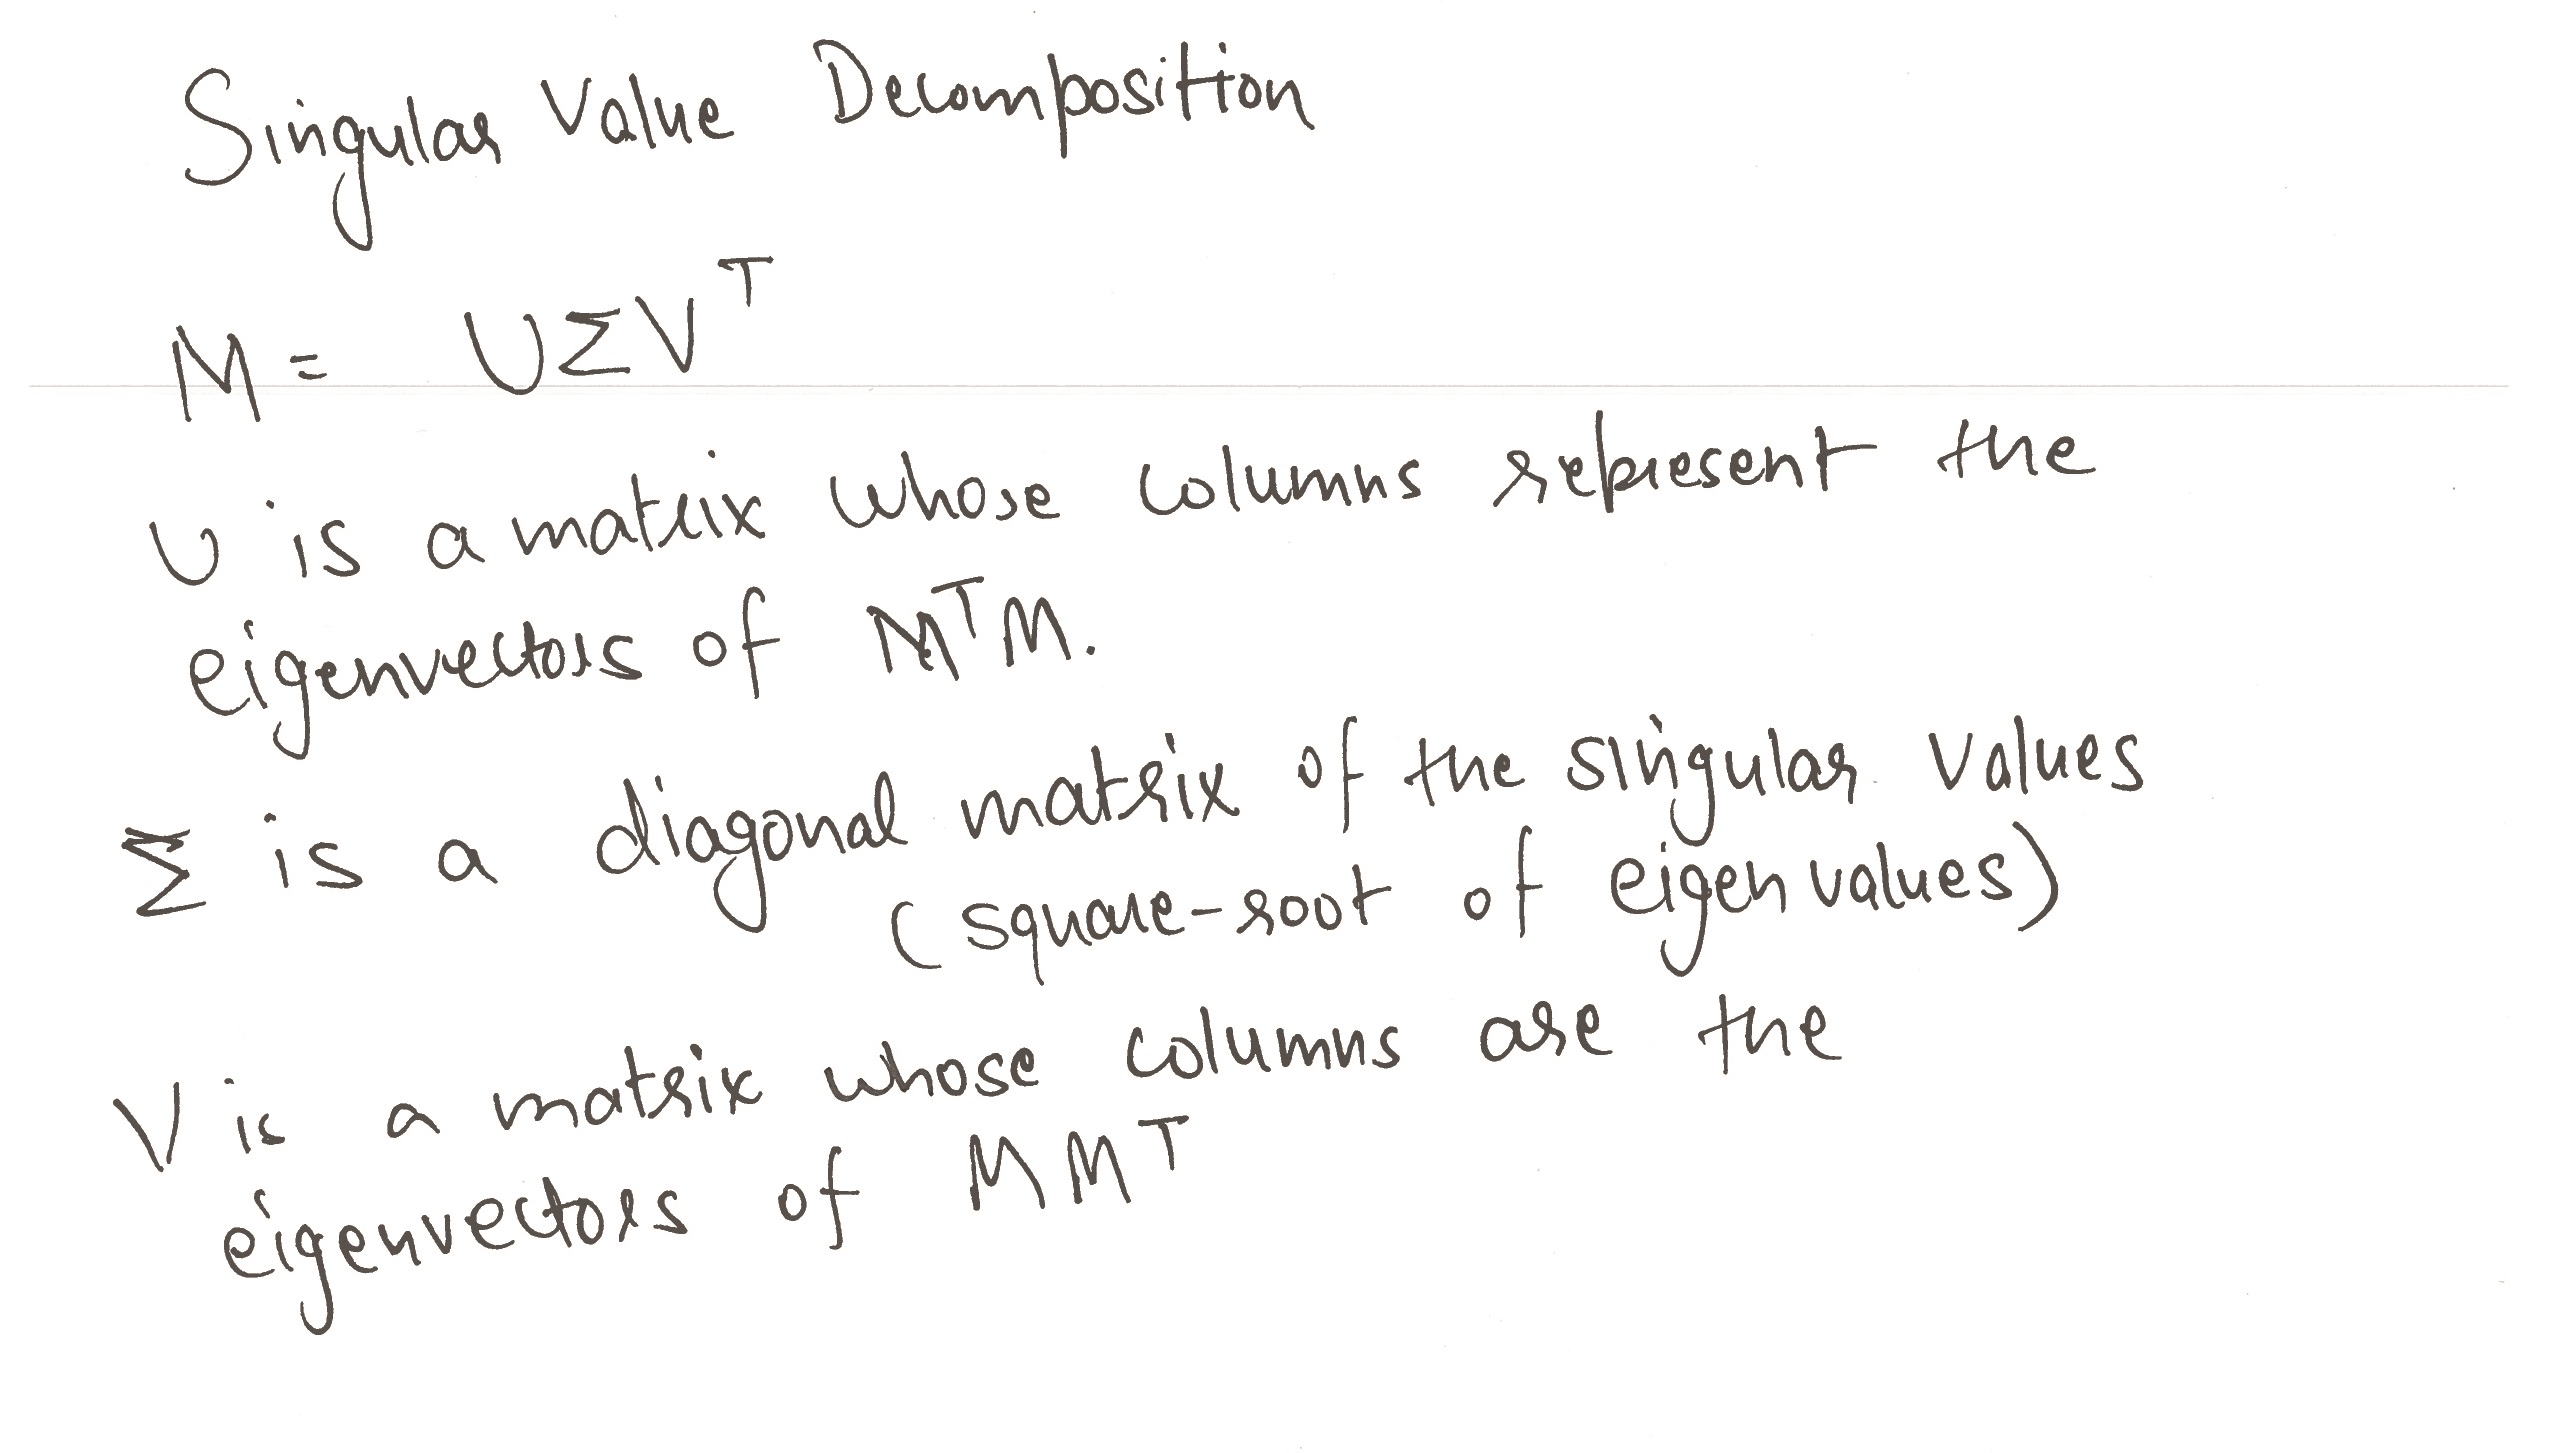 Singular Value Decomposition
M = UΣV^T
U is a matrix whose columns represent the
eigenvectors of M^T M.
Σ is a diagonal matrix of the singular values
(square-root of eigen values)
V is a matrix whose columns are the
eigenvectors of M M^T